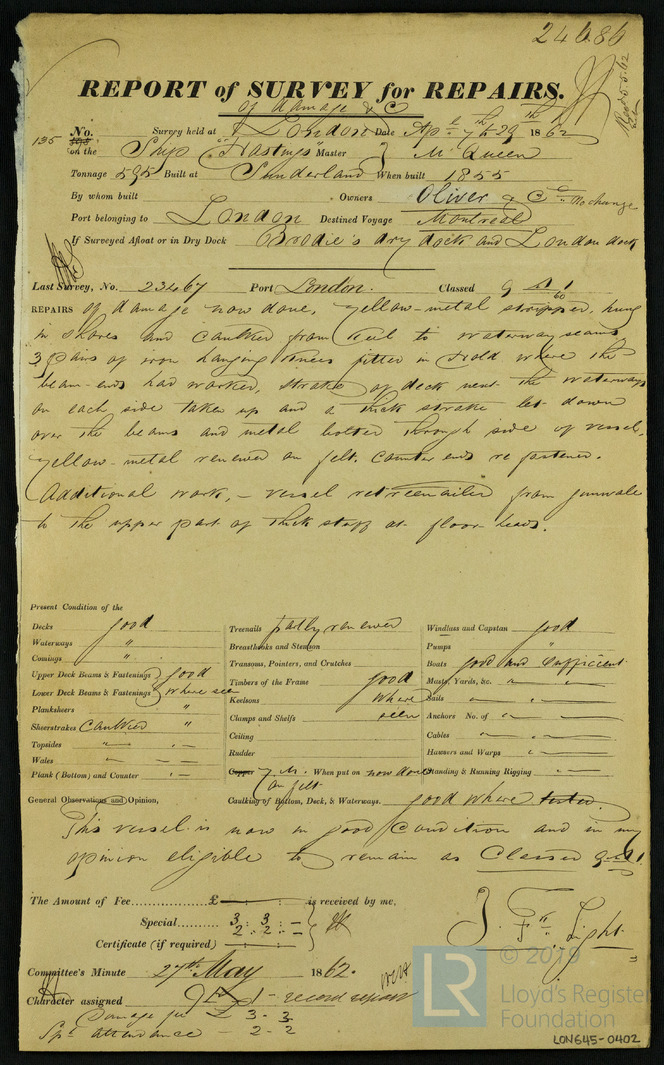 24686
REPORT of SURVEY for REPAIRS.
of damage & C
135 No. Survey held at London Date Apl 7th & 29th 1862
on the Ship "Hastings" Master McQueen
Tonnage 595 Built at Sunderland When built 1855
By whom built Owners Oliver & Co No change
Port belonging to London Destined Voyage Montreal
If Surveyed Afloat or in Dry Dock Brodie's dry dock and London dock
Last Survey, No. 23467 Port London. Classed 9 A 1
60
REPAIRS of damage now done, Yellow-metal stripped, hung
in shores and caulked from Keel to waterway seams
3 pairs of iron hanging knees fitted in Hold where the
beam-ends had worked, strake of deck next the waterways
on each side taken up and a thick strake let down
over the beams and metal bolted through side of vessel,
Yellow-metal renewed on felt. Counter ends refastened.
Additional work, - vessel retreenailed from gunwale
to the upper part of thick stuff at floor-heads.
Present Condition of the
Decks good
Waterways "
Comings "
Upper Deck Beams & Fastenings good
Lower Deck Beams & Fastenings where seen
Planksheers "
Sheerstrakes Caulked "
Topsides " "
Wales
Plank (Bottom) and Counter "
Treenails patly renewed
Breasthooks and Stemson
Transoms, Pointers, and Crutches
Timbers of the Frame good
Keelsons where
Clamps and Shelfs seen
Ceiling
Rudder
Copper Y.M. When put on now done
on felt
Caulking of Bottom, Deck, & Waterways. good where tested.
Windlass and Capstan good
Pumps "
Boats good and sufficient
Masts, Yards, &c. " "
Sails " "
Anchors No. of " "
Cables " "
Hawsers and Warps "
Standing & Running Rigging "
General Observations and Opinion,
This vessel is now in good Condition and in my
opinion eligible to remain as Classed 9 A 1.
The Amount of Fee £ is received by me,
Special 3 : 3 : -
2 : 2 : -
Certificate (if required)
J. F. Light
Committee's Minute 27th May 1862.
Character assigned 9 A 1 - record repairs
Damage fee £ 3 - 3
Spl attendance - 2 - 2
© 2019
LR
Lloyd's Register
Foundation
LON645-0402